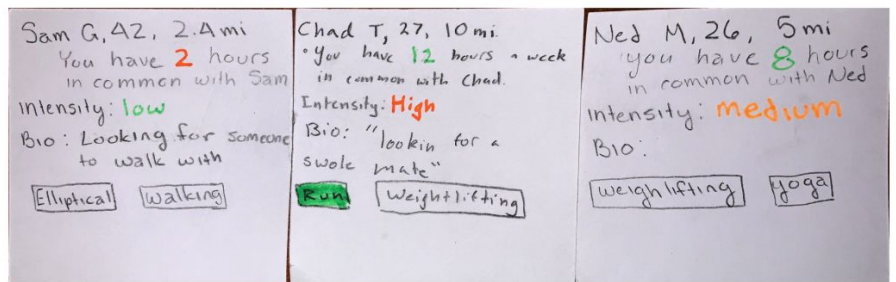 Sam G, 42, 2.4 mi
You have 2 hours
in common with Sam
Intensity: low
Bio: Looking for someone
to walk with
Elliptical
Walking
Chad T, 27, 10 mi.
• You have 12 hours a week
in common with Chad.
Intensity: High
Bio: "lookin for a
swole mate"
Run
Weightlifting
Ned M, 26, 5 mi
you have 8 hours
in common with Ned
Intensity: medium
Bio:
weighlifting
yoga